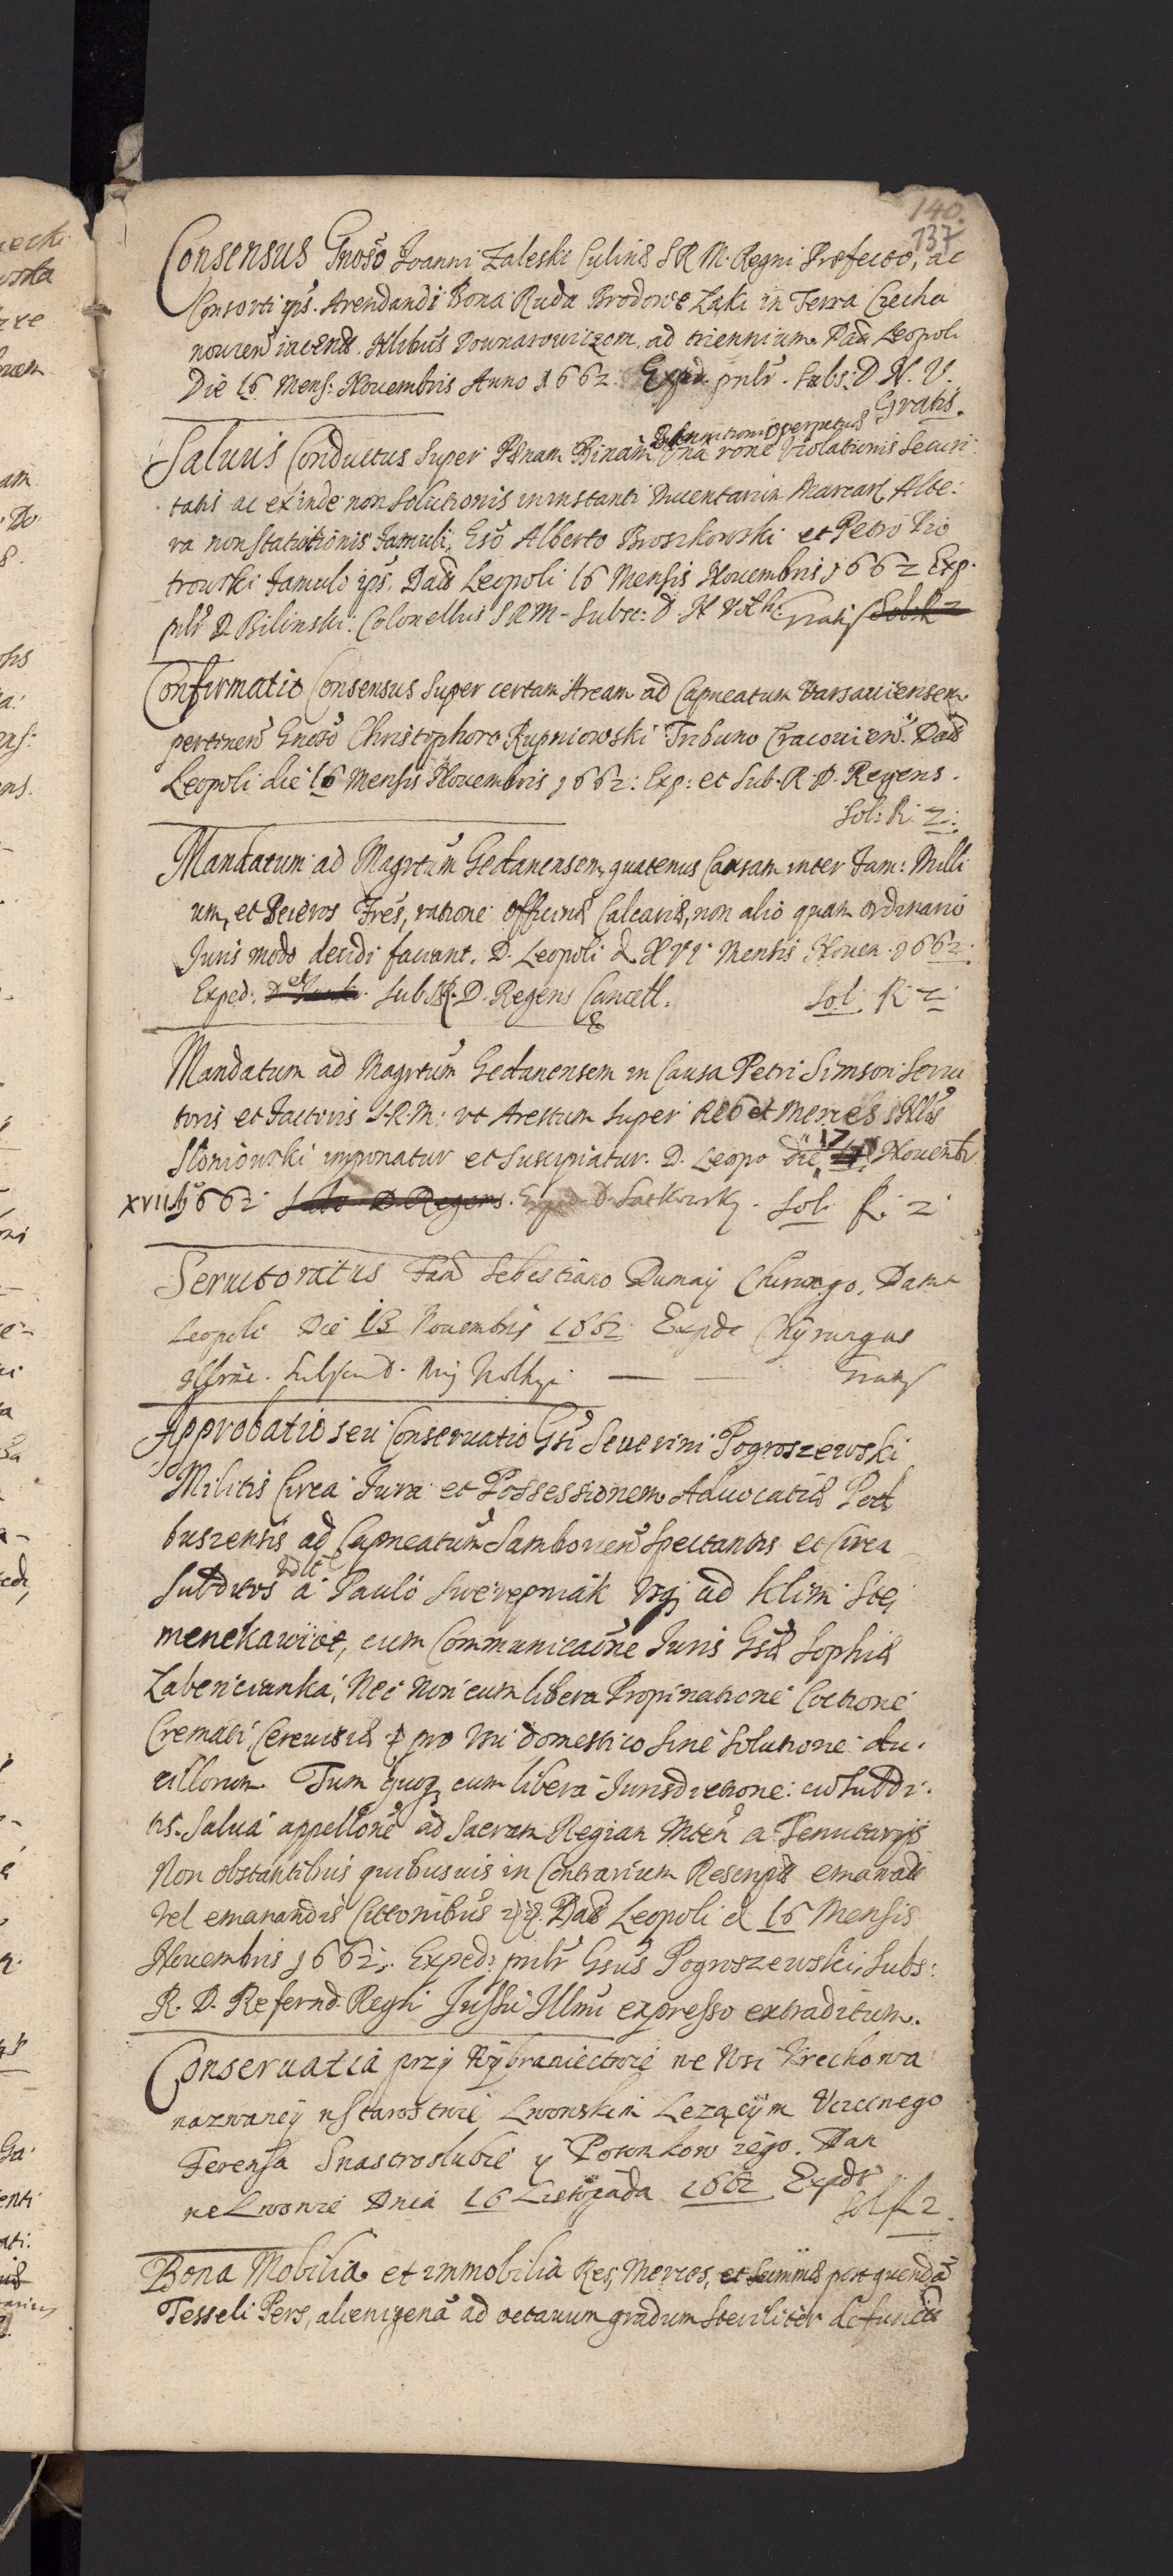 140.
137
Consensus Gnoso Joanni Zaleski Culinæ S R M. Regni Præfecto, ac
Consorti ips. Arendandi Bona Ruda Brodowe Łąki in Terra Czecha
nouien iacentã. Nlibus Dounarowiczom ad triennium. Datũ Leopoli
Die 16 Mens: Nouembris Anno 1662. Exped. pnlr. Subs: D. N. V.
Gratis.
Saluus Conductus Super Pænam Binam Bannitionis perpetuæ Una rone Violationis Securi
tatis ac exinde non Solutionis in instanti Ducentarum Marcarũ Alte:
ra non Statuitionis Famuli, Gso Alberto Broszkowski et Petro Pio
trowski Famulo ips. Datũ Leopoli 16 Mensis Nouembris 1662 Exp.
pnlr D. Bilinski. Colonellus S R M - Subsc: D. N Voth: Gratis Sol. R 2
Confirmatio Consensus Super certam Aream ad Capneatum Varsauiensem
pertinen Gnoso Christophoro Rupniowski Tribuno Cracouien. Datũ
Leopoli die 16 Mensis Nouembris 1662: Exp: et Sub. R. D. Regens.
Sol: R: 2:
Mandatum ad Magrtum Gedanensem, quatenus Causam inter Fam: Milli
um, et Beieros Fres, ratione Officinæ Calcariæ, non alio quam ordinario
Juris modo decidi faciant. D. Leopoli d XVI Mensis Nouem. 1662.
Exped: et Sub. R. D. Regens Cancell. Sol. R 2
Mandatum ad Magrtum Gedanensem in Causa Petri Simson Serui
toris et Factoris S.R.M: vt Arestum Super Res et Merces
Słoniowski imponatur et Suscipiatur. D. Leopo die 17 Nouemb
XVII 1662 Subs D. Regens. Exped D. Satkowsky. Sol: R. 2
Seruitoratus Fam Sebestiano Dumay Chirurgo. Datum
Leopoli Die 18 Nouembris 1662. Exped Chyrurgus
Gratis
Approbatio seu Conseruatio Gsi Seuerini Pogroszewski
Militis Circa Jura et Possessionem Aduocatiæ Pod
buszensis ad Capneatum Samborien Spectantis et Circa
Subditos vdlt a Paulo Swerepniak Usq ad Klim Ste
menekawiot, cum Communicaone Juris Gsæ Sophiæ
Zabencianka, Nec Non cum libera Propinatione Coctione
Cremati, Cereuisiæ pro Usu domestico Sine Solutione du.
cillorum. Tum quoq cum libera Jurisdictione: in Subdi.
tis. Salua appellone ad Sacram Regiam Mtem a Tenutarijs
Non obstantibus quibusuis in Contrarium Rescriptis emanatis
Vel emanandis Cittonibus Datũ Leopoli d 16 Mensis
Nouembris 1662. Exped: pnlr Gsus Pogroszewski, Subs:
R. D. Refernd. Regni Jussu Illmi expresso extraditum.
Conseruatia przy Wybraniectwie we Wsi Krechowa
nazwaney w Starostwie Lwowskim Leżącym Uczciwego
Ferensa Snastroslubie y Potomkow iego. Dan
we Lwowie Dnia 16 Listopada 1662 Exped
Sol fl 2.
Bona Mobilia et immobilia Res, Merces, et Summæ post quendã
Tesseli Pers, alienigenã ad octauum gradum Steriliter defuncti